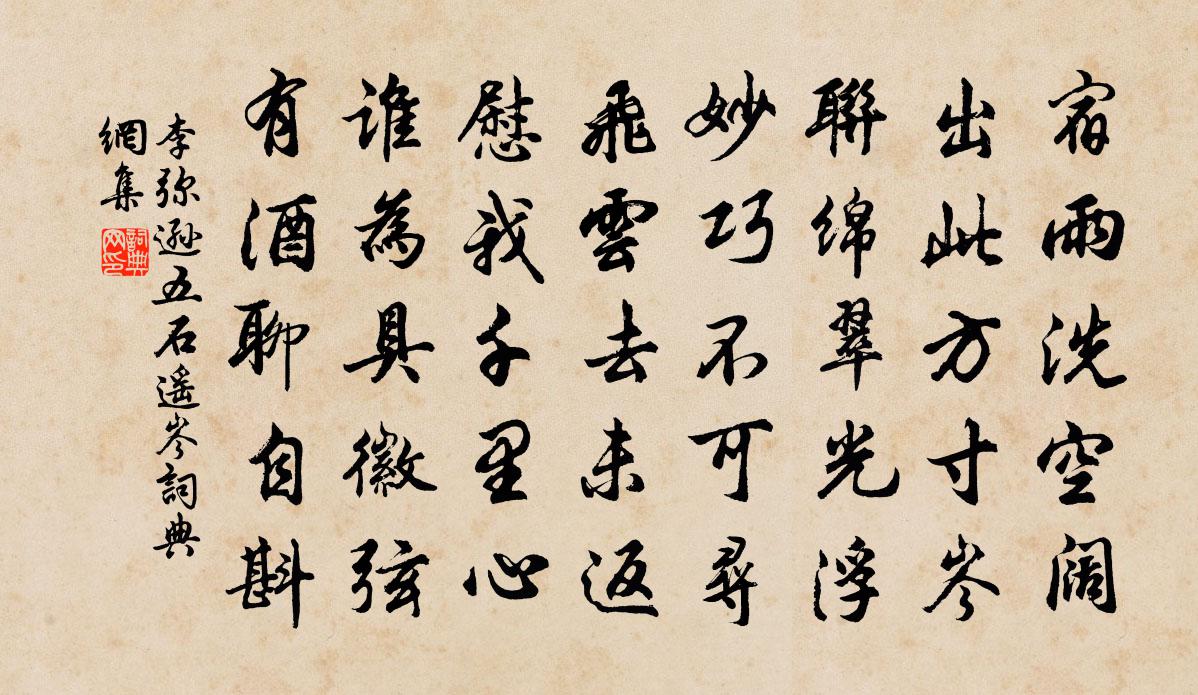 宿雨洗空阔
出此方寸岑
聯綿翠光浮
妙巧不可尋
飛雲去未返
慰我千里心
誰為具徽弦
有酒聊自斟
李弥遜五石遥岑詞典
網集
詞典
网印